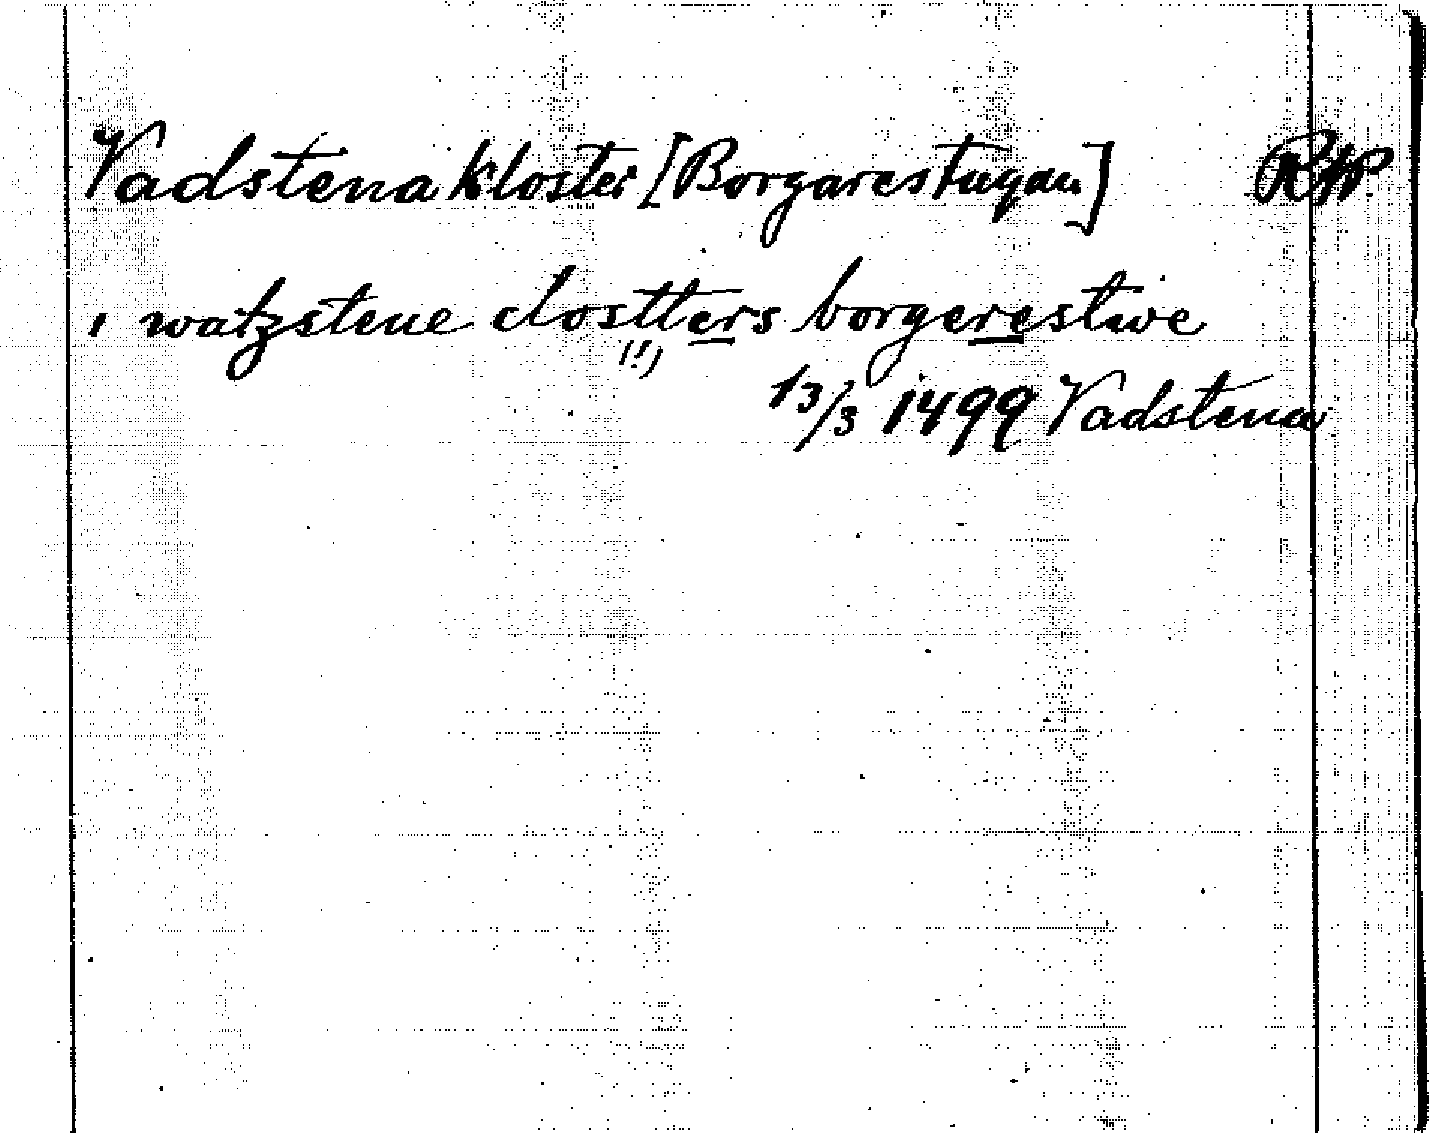 Vadstena kloster [Borgarestugan] RAP.
i watzstene clostters borgerestwe
(!)
13/3 1499 Vadstena